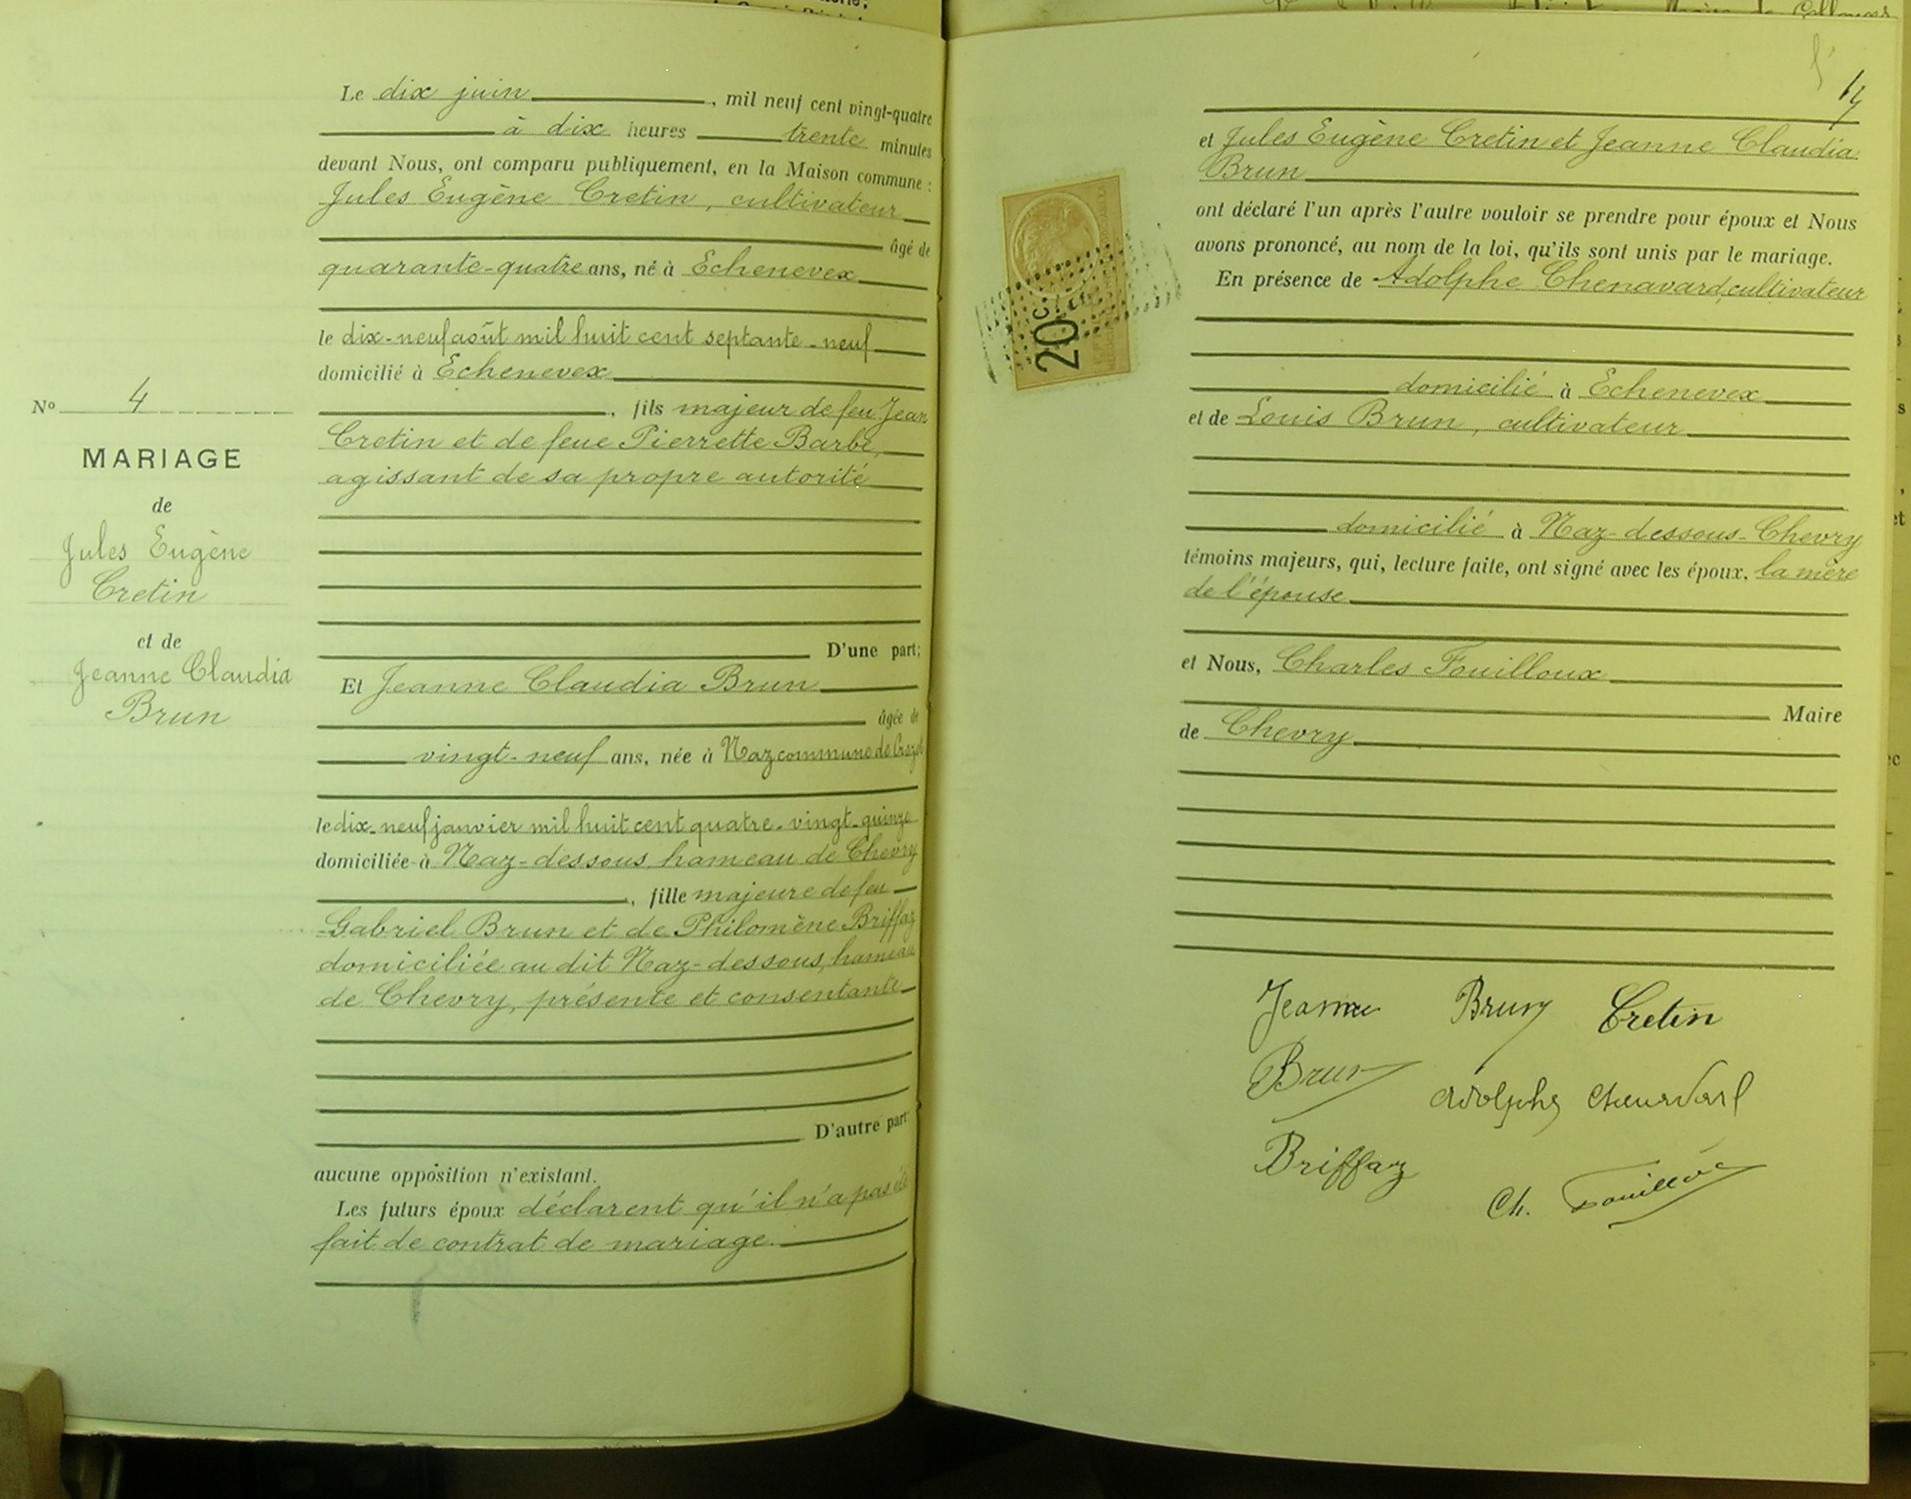 Nº 4
MARIAGE
de
Jules Eugène
Cretin
et de
Jeanne Claudia
Brun
Le dix juin, mil neuf cent vingt-quatre
à dix heures trente minutes
devant Nous, ont comparu publiquement, en la Maison commune :
Jules Eugène Cretin, cultivateur
âgé de
quarante-quatre ans, né à Echenevex
le dix-neuf août mil huit cent septante-neuf
domicilié à Echenevex
, fils majeur de feu Jean
Cretin et de feue Pierrette Barbe,
agissant de sa propre autorité
D'une part;
Et Jeanne Claudia Brun
âgée de
vingt-neuf ans, née à Naz commune de
le dix-neuf janvier mil huit cent quatre-vingt-quinze
domiciliée à Naz-dessous, hameau de Chevry
, fille majeure de feu
Gabriel Brun et de Philomène Briffaz
domiciliée au dit Naz-dessous, hameau
de Chevry, présente et consentante
D'autre part
aucune opposition n'existant.
Les futurs époux déclarent qu'il n'a pas été
fait de contrat de mariage.
14
et Jules Eugène Cretin et Jeanne Claudia
Brun
ont déclaré l'un après l'autre vouloir se prendre pour époux et Nous
avons prononcé, au nom de la loi, qu'ils sont unis par le mariage.
En présence de Adolphe Chenavard, cultivateur
domicilié à Echenevex
et de Louis Brun, cultivateur
domicilié à Naz-dessous-Chevry
témoins majeurs, qui, lecture faite, ont signé avec les époux, la mère
de l'épouse
et Nous, Charles Fouilloux
Maire
de Chevry
20c
Jeanne Brun Cretin
Brun Adolphe Chenavard
Briffaz
Ch. Fouilloux